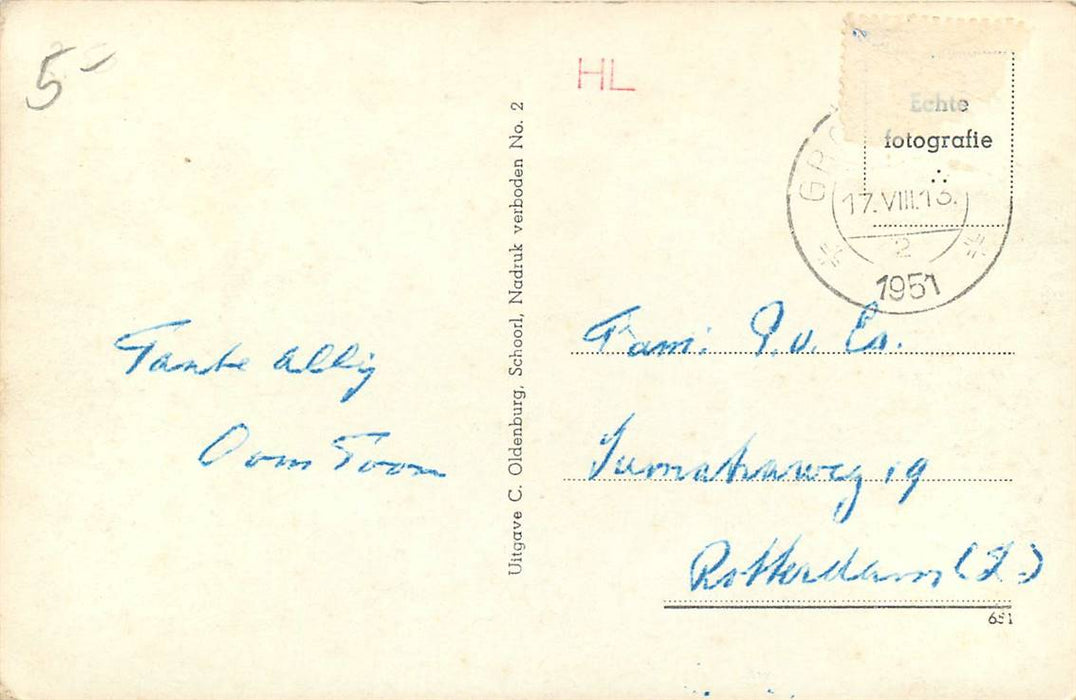 5-
HL
Echte
fotografie
GRO
17.VIII.13.
2
1951
Uitgave C. Oldenburg, Schoorl, Nadruk verboden No. 2
Tante
Oom Toon
Fam: P.v. Es.
Sumatraweg 19
Rotterdam (Z.)
651